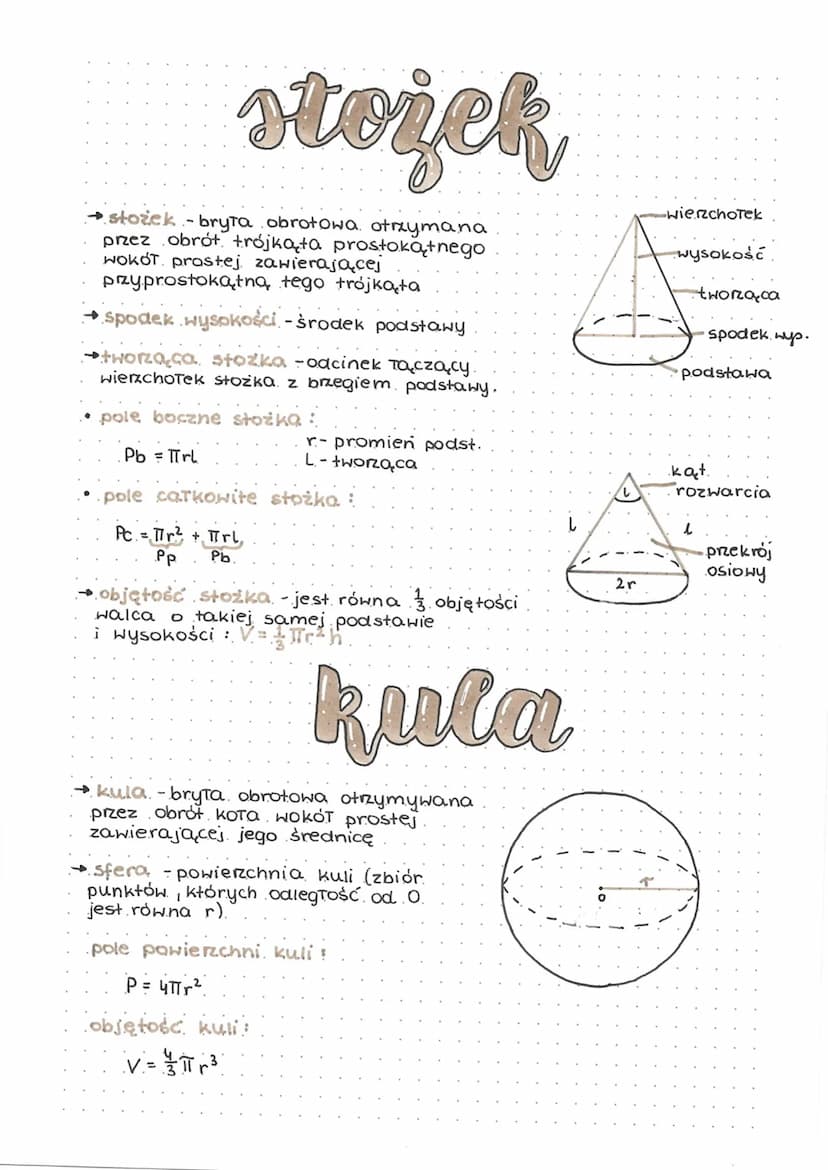 stożek
→ stożek - bryła obrotowa otrzymana
przez obrót trójkąta prostokątnego
wokół prostej zawierającej
przyprostokątną tego trójkąta
→ spodek wysokości - środek podstawy
→ tworząca stożka - odcinek łączący
wierzchołek stożka z brzegiem podstawy.
wierzchołek
wysokość
tworząca
spodek wys.
podstawa
• pole boczne stożka:
Pb = πrl
r - promień podst.
L - tworząca
• pole całkowite stożka:
Pc = πr² + πrl
Pp Pb
kąt
rozwarcia
l
l
przekrój
osiowy
2r
→ objętość stożka - jest równa 1/3 objętości
walca o takiej samej podstawie
i wysokości: V = 1/3 πr²h
kula
→ kula - bryła obrotowa otrzymywana
przez obrót koła wokół prostej
zawierającej jego średnicę
→ sfera - powierzchnia kuli (zbiór
punktów, których odległość od O
jest równa r)
r
o
pole powierzchni kuli:
P = 4πr²
objętość kuli:
V = 4/3 π r³